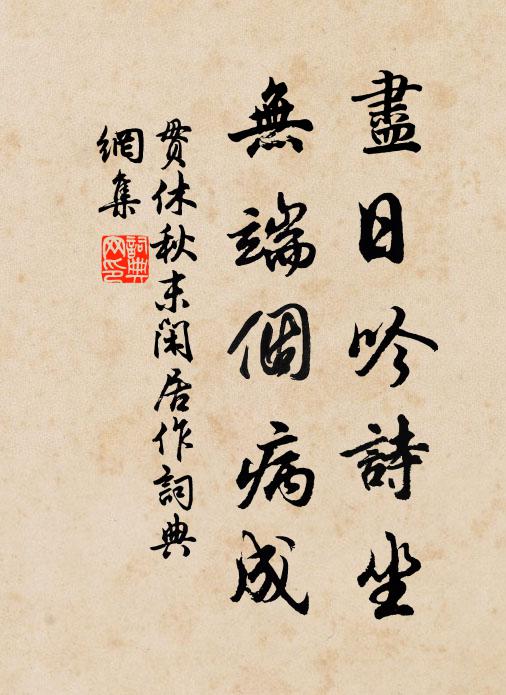 盡日吟詩坐
無端個病成
貫休秋末閑居作詞典
網集
詞典網印